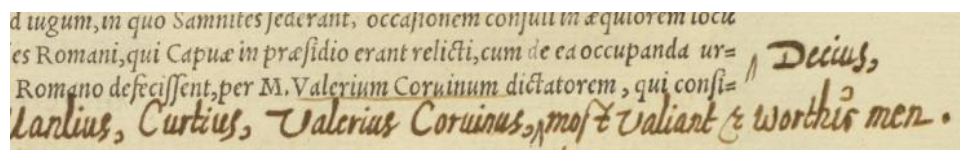 d iugum, in quo Samnites ſederant, occaſionem conſuli in æquiorem locū
es Romani, qui Capuæ in præſidio erant relicti, cum de ea occupanda ur=
Romano defeciſſent, per M. Valerium Coruinum dictatorem, qui conſi=
Decius,
Manlius, Curtius, Valerius Coruinus, moſt Valiant & men.